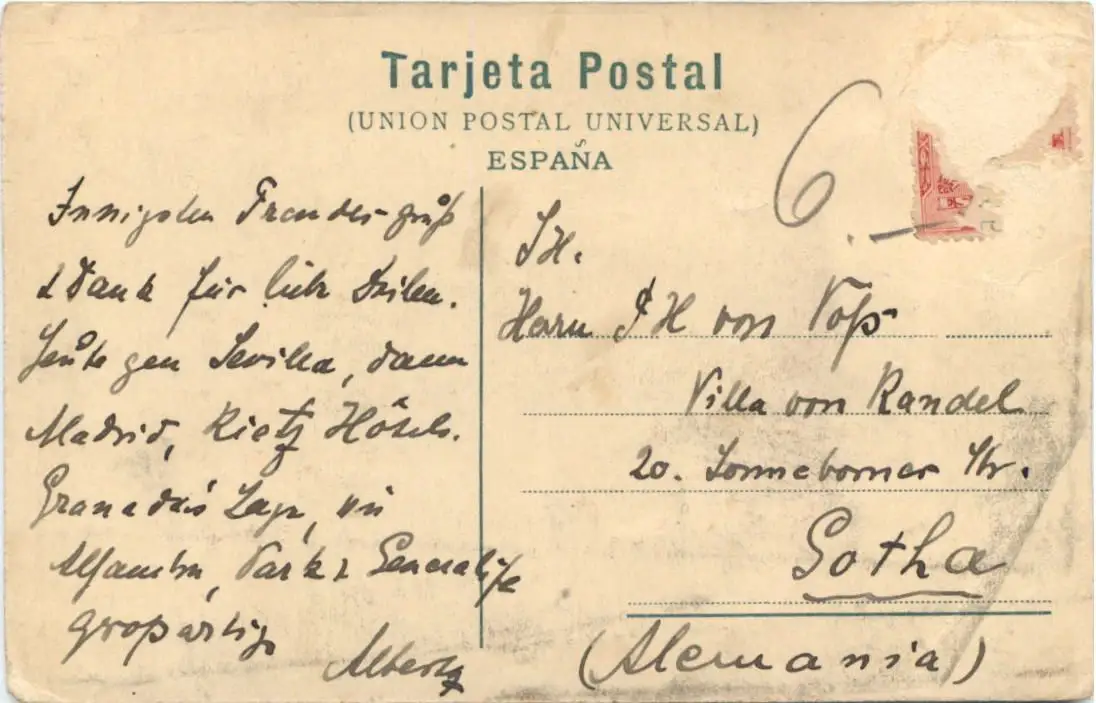 Tarjeta Postal
(UNION POSTAL UNIVERSAL)
ESPAÑA
6.
Innigsten Freundesgruß
& Dank für liebe Zeilen.
Heute gen Sevilla, dann
Madrid, Rietz Hôtels.
Granada's Lage, wie
Alhambra, Park & Generalife
großartig
Albert
Herrn J H von Voß
Villa von Randel
20. Sonneborner Str.
Gotha
(Alemania)